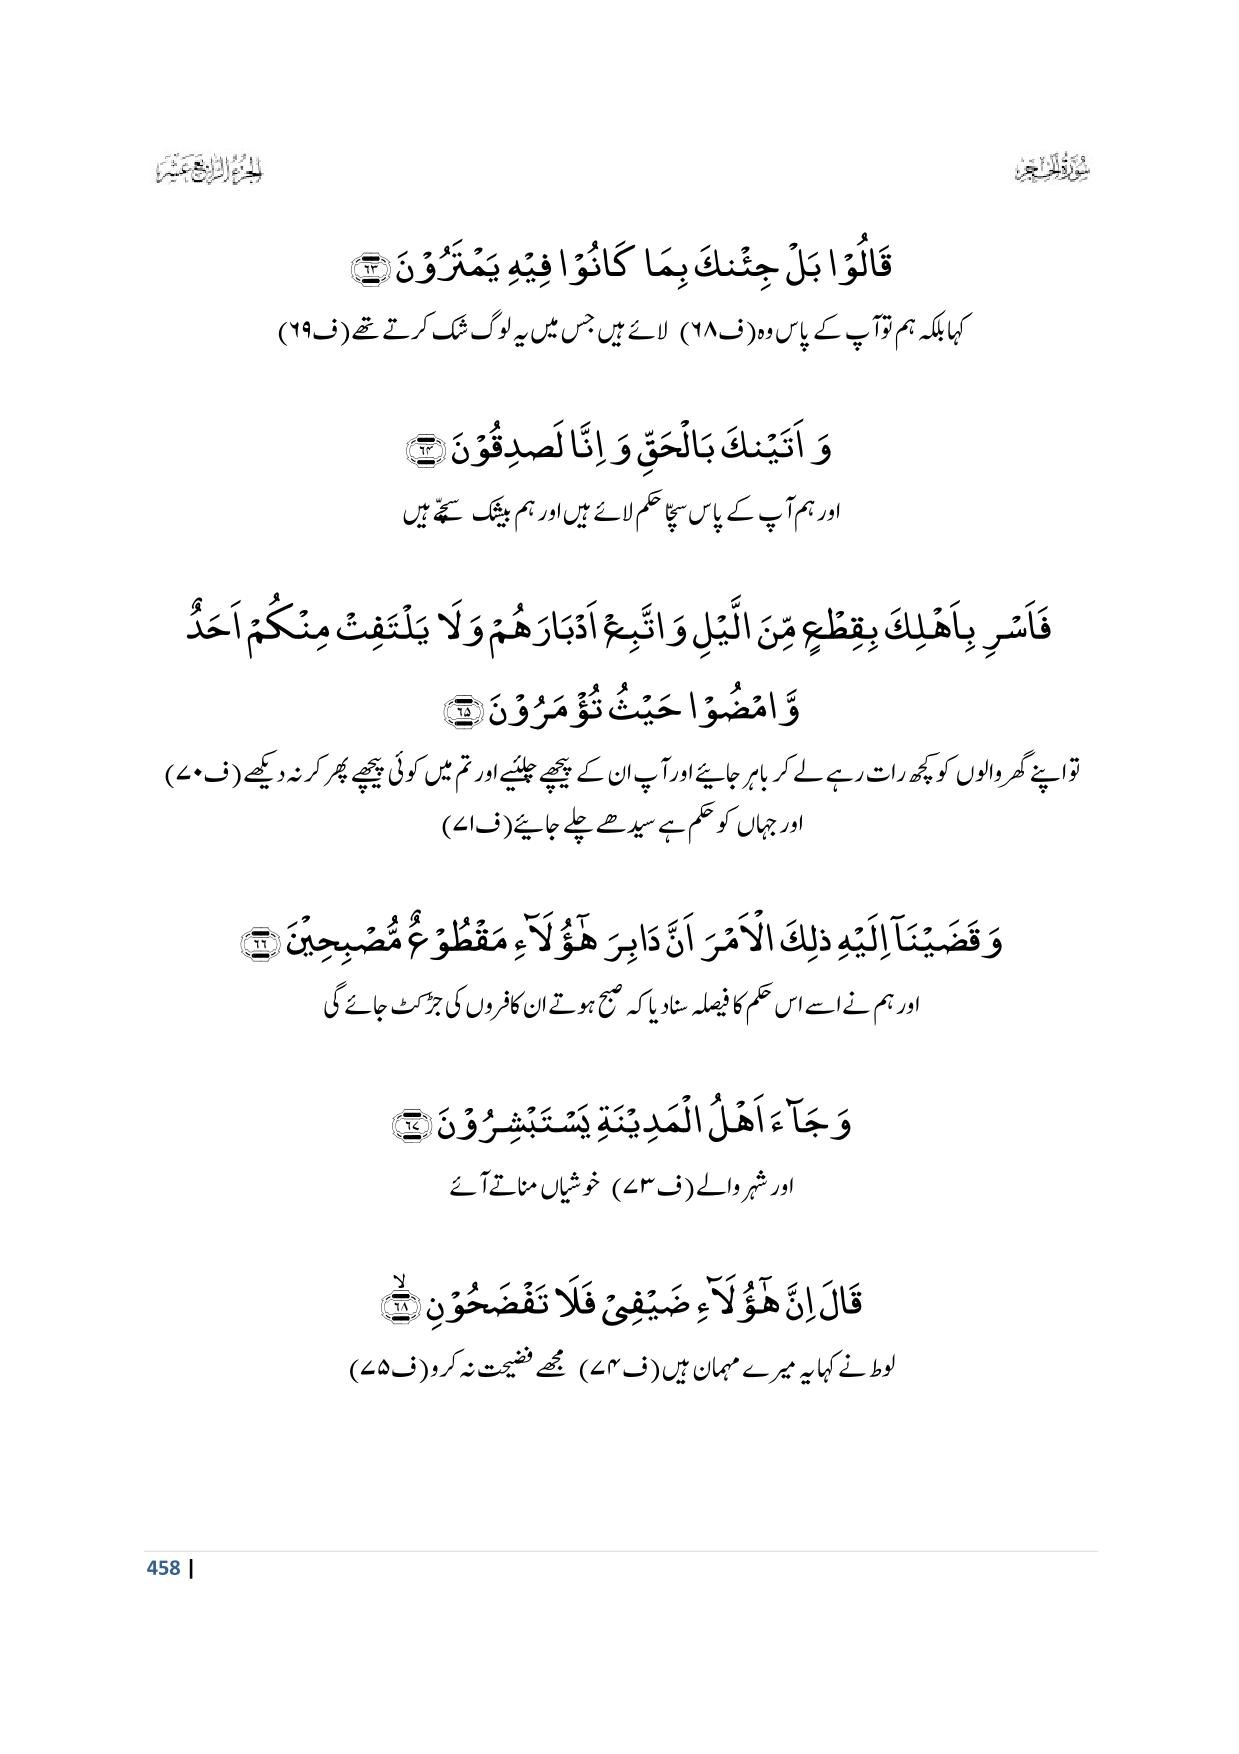 سُوْرَةُ الْحِجْر
الجزء الرابع عشر
قَالُوْا بَلْ جِئْنٰكَ بِمَا كَانُوْا فِیْهِ یَمْتَرُوْنَ ﴿۶۳﴾
کہا بلکہ ہم تو آپ کے پاس وہ (ف۶۸) لائے ہیں جس میں یہ لوگ شک کرتے تھے (ف۶۹)
وَ اَتَیْنٰكَ بِالْحَقِّ وَ اِنَّا لَصٰدِقُوْنَ ﴿۶۴﴾
اور ہم آپ کے پاس سچّا حکم لائے ہیں اور ہم بیشک سچّے ہیں
فَاَسْرِ بِاَهْلِكَ بِقِطْعٍ مِّنَ الَّیْلِ وَ اتَّبِعْ اَدْبَارَهُمْ وَ لَا یَلْتَفِتْ مِنْكُمْ اَحَدٌ
وَّ امْضُوْا حَیْثُ تُؤْمَرُوْنَ ﴿۶۵﴾
تو اپنے گھر والوں کو کچھ رات رہے لے کر باہر جائیے اور آپ ان کے پیچھے چلئیے اور تم میں کوئی پیچھے پھر کر نہ دیکھے (ف۷۰)
اور جہاں کو حکم ہے سیدھے چلے جائیے (ف۷۱)
وَ قَضَیْنَاۤ اِلَیْهِ ذٰلِكَ الْاَمْرَ اَنَّ دَابِرَ هٰۤؤُلَآءِ مَقْطُوْعٌ مُّصْبِحِیْنَ ﴿۶۶﴾
اور ہم نے اسے اس حکم کا فیصلہ سنادیا کہ صبح ہوتے ان کافروں کی جڑ کٹ جائے گی
وَ جَآءَ اَهْلُ الْمَدِیْنَةِ یَسْتَبْشِرُوْنَ ﴿۶۷﴾
اور شہر والے (ف۷۳) خوشیاں مناتے آئے
قَالَ اِنَّ هٰۤؤُلَآءِ ضَیْفِیْ فَلَا تَفْضَحُوْنِ ﴿ۙ۶۸﴾
لوط نے کہا یہ میرے مہمان ہیں (ف۷۴) مجھے فضیحت نہ کرو (ف۷۵)
458 |